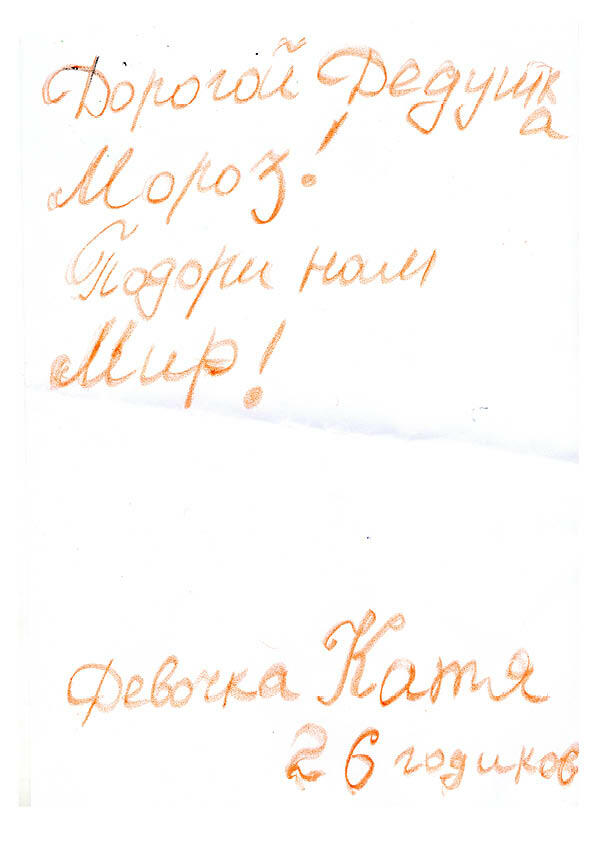 Дорогой Дедушка
Мороз!
Подори нам
Мир!
Девочка Катя
26 годиков